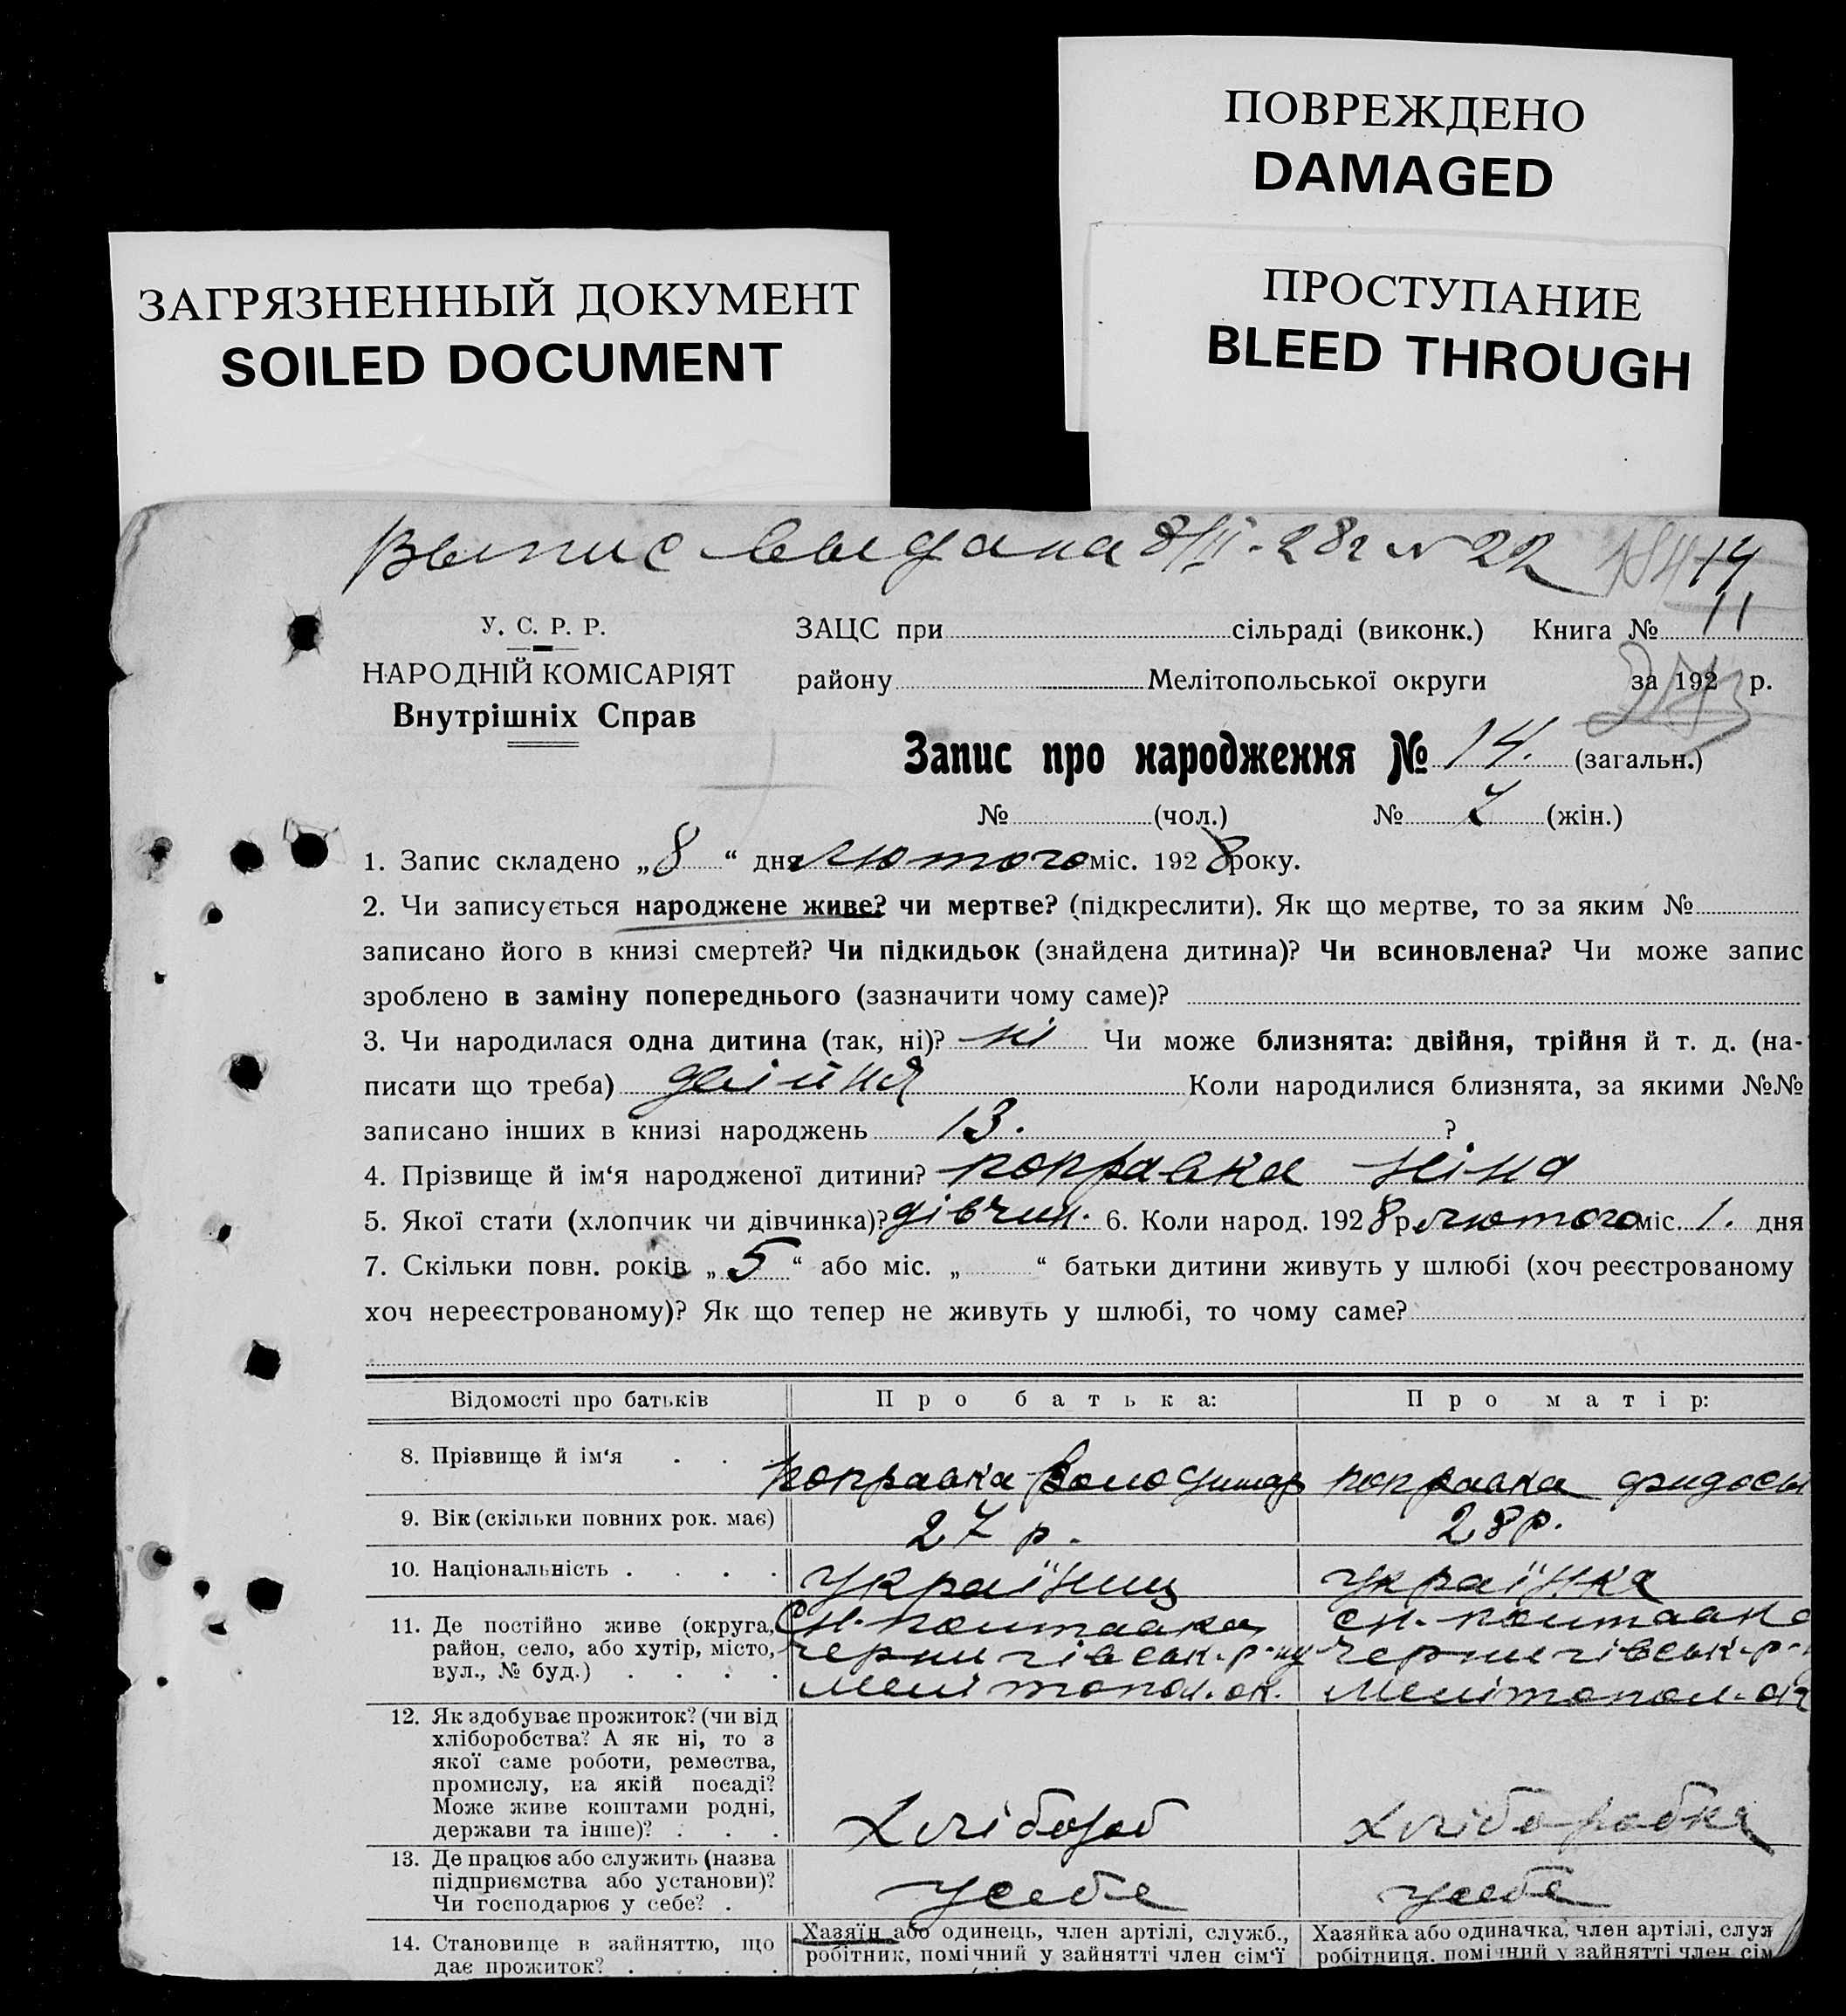 ПОВРЕЖДЕНО
DAMAGED
ЗАГРЯЗНЕННЫЙ ДОКУМЕНТ
SOILED DOCUMENT
ПРОСТУПАНИЕ
BLEED THROUGH
Выпис выдана 8/II-28г № 22 14
У. С. Р. Р.
НАРОДНІЙ КОМІСАРІЯТ
Внутрішніх Справ
ЗАЦС при сільраді (виконк.) Книга № 11
району Мелітопольської округи за 192 р.
Запис про народження № 14. (загальн.)
№ (чол.) № 7 (жін.)
1. Запис складено „8“ дня лютого міс. 1928 року.
2. Чи записується народжене живе? чи мертве? (підкреслити). Як що мертве, то за яким №
записано його в книзі смертей? Чи підкидьок (знайдена дитина)? Чи всиновлена? Чи може запис
зроблено в заміну попереднього (зазначити чому саме)?
3. Чи народилася одна дитина (так, ні)? ні Чи може близнята: двійня, трійня й т. д. (на-
писати що треба) двійня Коли народилися близнята, за якими №№
записано інших в книзі народжень 13. ?
4. Прізвище й ім‘я народженої дитини? Поправка Ніна
5. Якої стати (хлопчик чи дівчинка)? дівчин. 6. Коли народ. 1928 р. лютого міс. 1. дня
7. Скільки повн. років „5“ або міс. „ “ батьки дитини живуть у шлюбі (хоч реєстрованому
хоч нереєстрованому)? Як що тепер не живуть у шлюбі, то чому саме?
Відомості про батьків Про батька: Про матір:
8. Прізвище й ім‘я . . Поправка Володимир Поправка Фидосы
9. Вік (скільки повних рок. має) 27 р. 28 р.
10. Національність . . . . українец українка
11. Де постійно живе (округа, Сн. Полтавка сн. Полтавка
район, село, або хутір, місто, Чернигівськ. р-ну Чернигівськ. р-
вул., № буд.) . . . . Мелітопол. ок. Мелітопол. ок
12. Як здобуває прожиток? (чи від
хліборобства? А як ні, то з
якої саме роботи, ремества,
промислу, на якій посаді?
Може живе коштами родні,
держави та інше)? . . . Хлібороб хліборобка
13. Де працює або служить (назва
підприємства або установи)?
Чи господарює у себе? . у себе у себе
14. Становище в зайняттю, що Хазяїн або одинець, член артілі, служб., Хазяйка або одиначка, член артілі, служ
дає прожиток? . . . . робітник, помічний у зайнятті член сім‘ї робітниця, помічний у зайнятті член сім